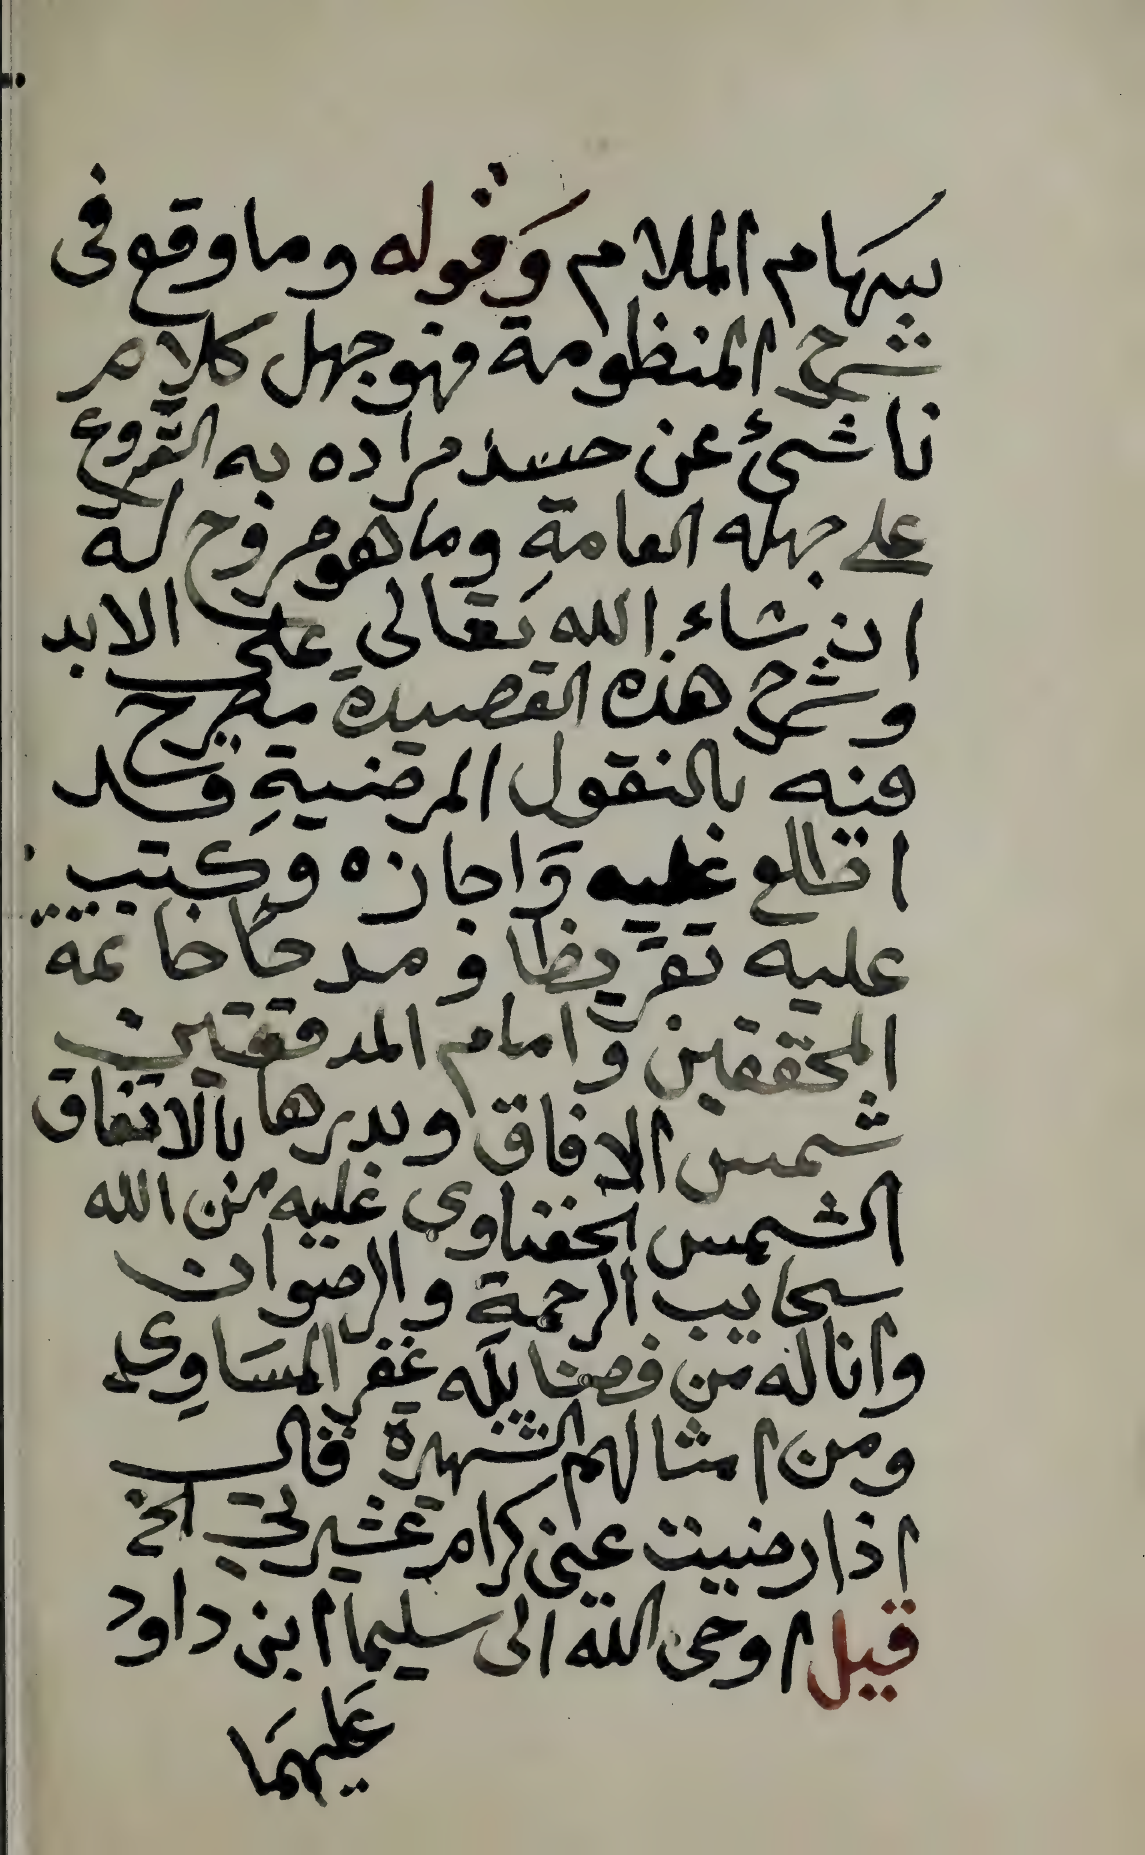 بسهام الملام وقوله وما وقع فى
شرح المنظومة فهو جهل كلام
ناشئ عن حسد مراده به التروع
على جهله العامة وما هو مروح له
ان شاء الله تعالى على الابد
وشرح هذه القصيدة مصرح
فيه بالنقول المرضية قد
اطلع عليه واجازه وكتب
عليه تقريظا ومدحا خاتمة
المحققين وامام المدققين
شمس الافاق وبدرها بالاتفاق
الشمس الحفناوى عليه من الله
سحايب الرحمة والرضوان
واناله من فضايله غفر المساوى
ومن امثالهم الشهيرة قالب
اذا رضيت عنى كرام عشيرتى الخ
قيل اوحى الله الى سليما ابن داود
عليهما